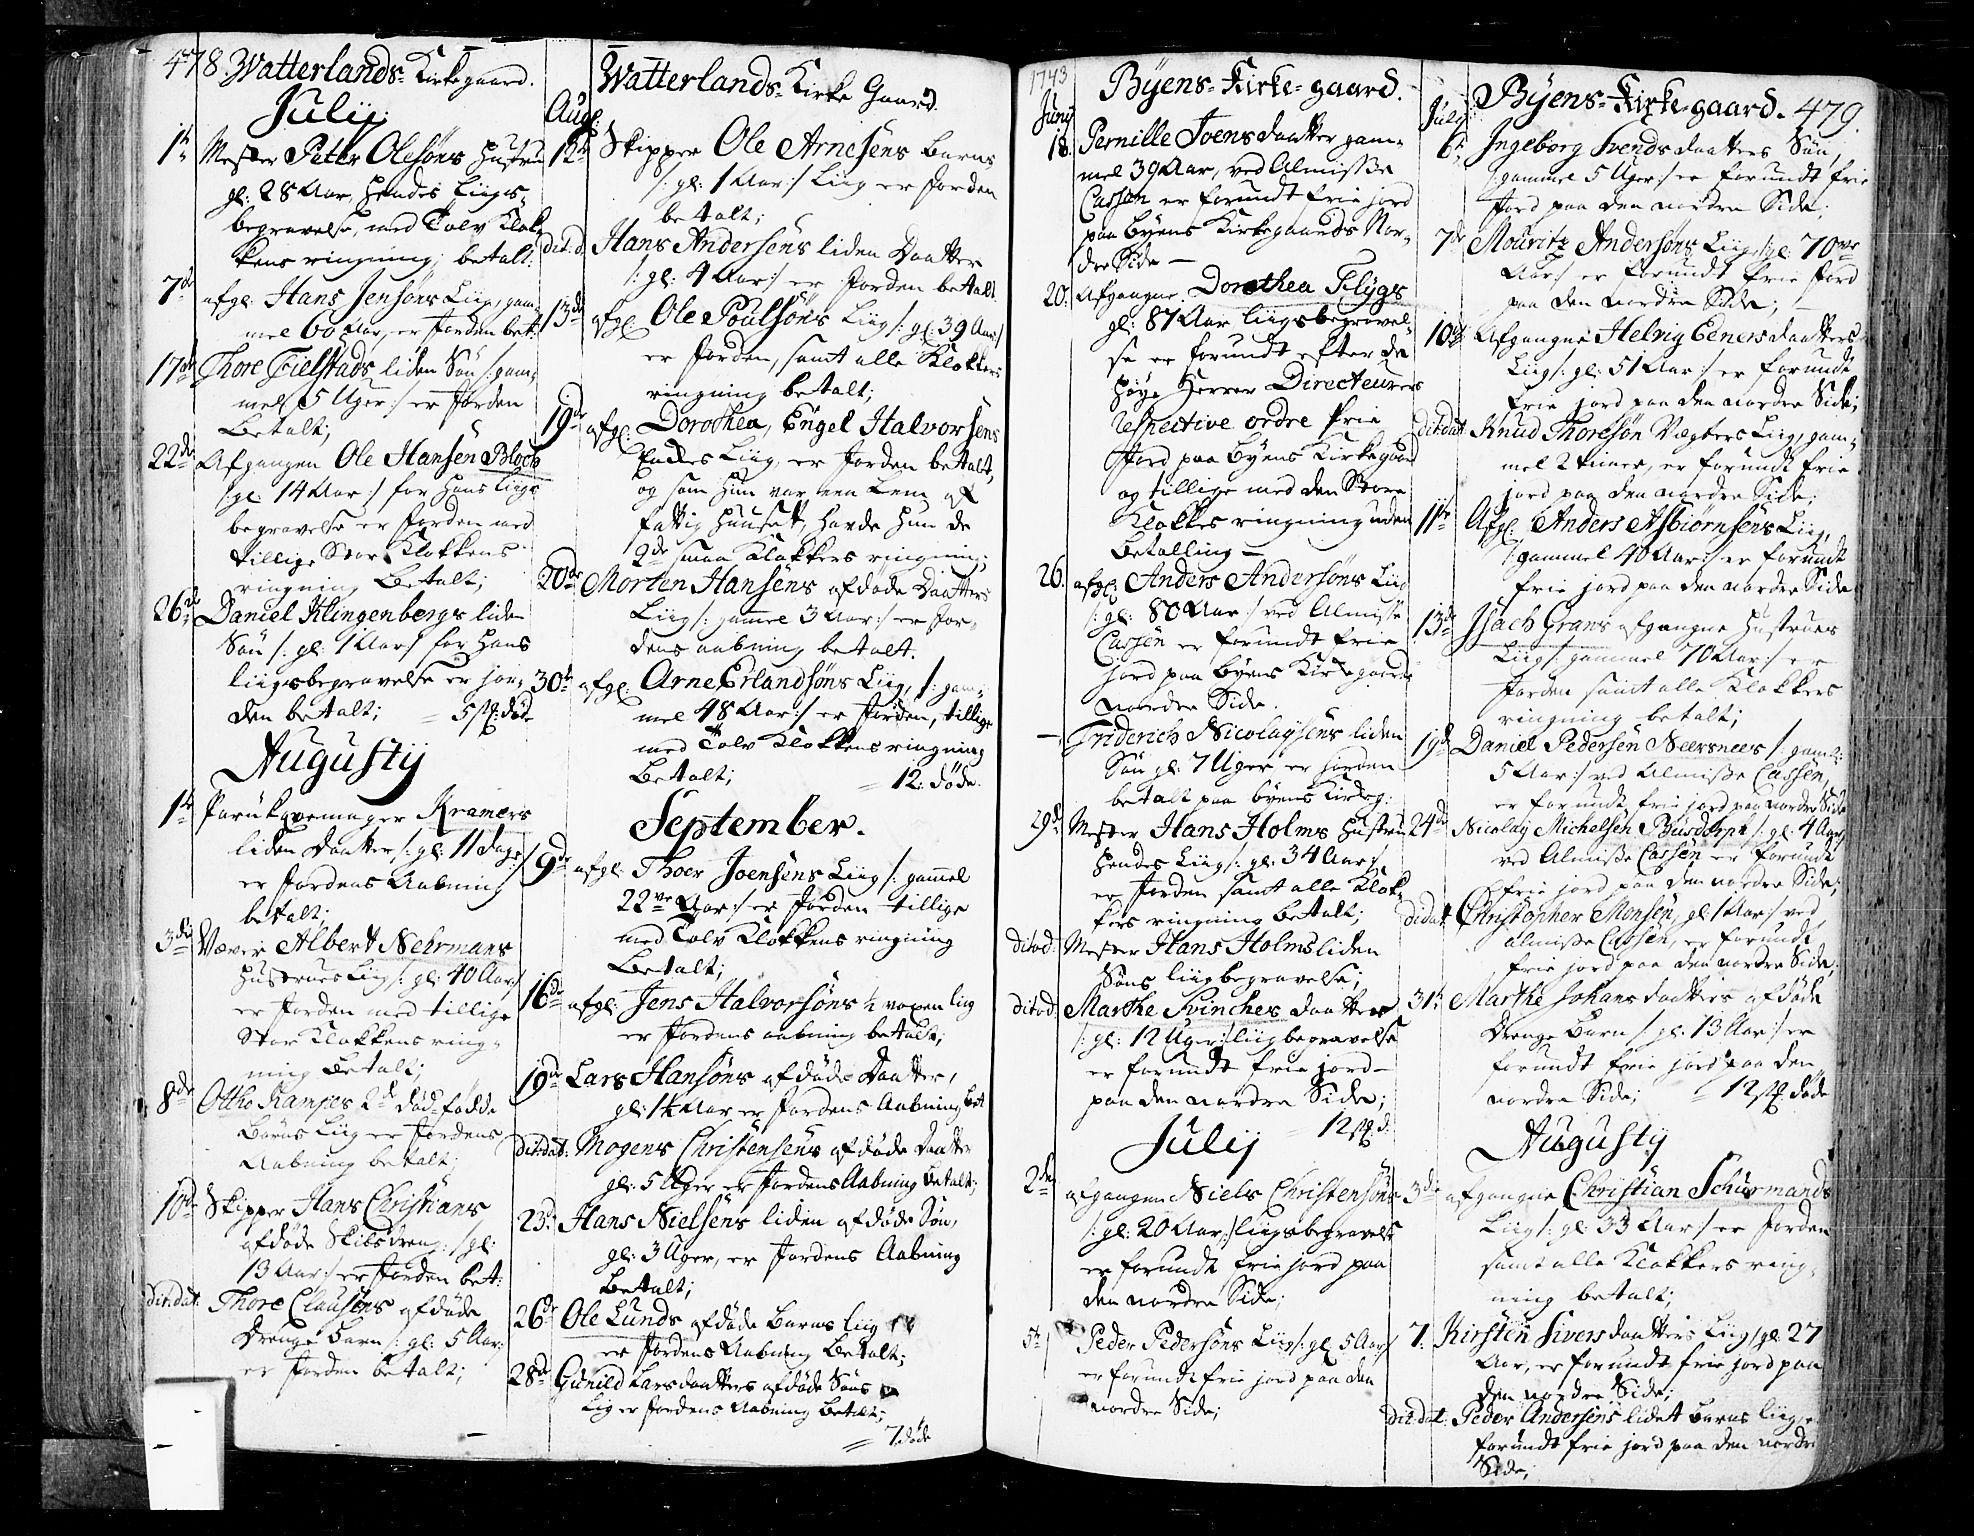 478. Watterlands-Kirkegaard.
Julij
1te Mester Peter Olesøns Hustru
gl: 28 Aar, Hendes Liigs-
begravelse, med Tolv Klok-
kens ringning; betalt:
7de afgl: Hans Jensøns Liig, gam-
mel 60 Aar, er Jorden bet:
17de Thore Fielstads liden Søn /: gam-
mel 5 Uger :/ er Jorden
Betalt;
22de Afgangen Ole Hansen Bloch
/: gl: 14 Aar :/ for Hans Liigs
begravelse er Jorden med
tillige Stor Klokkens
ringning Betalt;
26de Daniel Klingenbergs liden
Søn /: gl: 1 Aar :/ for Hans
liigsbegravelse er jor-
den betalt; = 5 stk: døde
Augustij
1te Parükqvemager Kramers
liden Daatter /: gl: 11 dage :/
er Jordens Aabning
betalt;
3die Væver Albert Nehrmans
Hustrues Liig /: gl: 40 Aar :/
er Jorden med tillige
Stor Klokkens ring-
ning Betalt;
8de Otthe Kampes 2de død-fødde
Børns Liig er Jordens
Aabning betalt;
10de Skipper Hans Christians
afdøde Skibsdreng: /: gl:
13 Aar :/ er Jorden bet:
dit:dat: Thore Clausens afdøde
Drenge Barn /: gl: 5 Aar:
er Jorden betalt;
Watterlands-Kirke Gaard.
Aug:
12te Skipper Ole Arnesens Barns
/: gl: 1 Aar :/ Liig er Jorden
betalt;
dit:d: Hans Andersens liden Daatter
/: gl: 4 Aar :/ er Jorden betalt
13de afgl: Ole Poulsøns Liig /: gl: 39 Aar :/
er Jorden, samt alle Klokkers
ringning betalt;
19de afgl: Dorothea, Engel Halvorsens
Liig, er Jorden betalt,
og som Hun var een Lem af
fattig Huuset, Havde Hun de
2de smaa Klokkers ringning;
20de Morten Hansens afdøde Daatters
Liig /: gammel 3 Aar :/ er Jor-
dens aabning betalt.
30te afgl: Arne Erlandsøns Liig, /: gam-
mel 48 Aar :/ er Jorden, tillige
med Tolv Klokkens ringning
Betalt; = 12: døde.
September.
9de afgl: Thoer Joensens Liig /: gammel
22ve Aar :/ er Jorden tillige
med Tolv Klokkens ringning
Betalt;
16de afgl: Jens Halvorsøns ½ voxen liig
er Jordens aabning betalt;
19de Lars Hansøns afdøde Daatter,
gl: 1½ Aar er Jordens Aabning bet
dit:dat: Mogens Christensens afdøde Daatter
gl: 5 Uger er Jordens Aabning Betalt;
23: Hans Nielsens liden afdøde Søn,
gl: 3 Uger, er Jordens Aabning
Betalt;
26de Ole Lunds afdøde Barns liig
er Jordens Aabning Betalt;
28de Gunild Larsdaatters afdøde Søns
Lig er Jordens Aabning Betalt;
= 7 døde
1743
Byens-Kirke-gaard.
Junij
18. Pernille Joensdaatter gam-
mel 39 Aar, ved Almisse
Cassen er forundt frie jord
paa Byens Kirkegaards Nor-
dre Side —
20. Afgangne Dorothea Flygs
gl: 87 Aar liigsbegravel-
se er forundt efter de
Høye Herrer Directeurers
respective ordre frie
Jord paa Byens Kirkegaard
og tillige med den Store
Klokkes ringning uden
Betalling —
26. afgl: Anders Andersøns Liig
/: gl: 80 Aar :/ ved Almisse
Cassen er forundt frie
jord paa byens Kirkegaards
nordre Side.
—, Friderich Nicolaysens liden
Søn gl: 7 Uger, er Jorden
betalt paa byens Kirkeg:
29de Mester Hans Holms Hustru
Hendes Liig /: gl: 34 Aar :/
er Jorden samt alle Klok-
kers ringning betalt;
dito d: Mester Hans Holms liden
Søns liigbegravelse;
dito d: Marthe Svinches Daatter
/: gl: 12 Uger :/ liigbegravelse
er forundt frie jord —
paa den nordre Side;
= 12 stk d:
Julij
2den afgangen Niels Christensøns
/: gl: 20 Aar, :/ liigsbegravelse
er forundt frie jord paa
den nordre Side;
5te Peder Pedersøns Liig /: gl: 5 Aar :/
er forundt frie jord paa den
nordre Side;
Byens-Kirke-gaard. 479.
Julij
6te Ingeborg Svendsdaatters Søn,
/: gammel 5 Uger :/ er forundt frie
Jord paa den nordre Side;
7de Mouritz Andersøns Liig, /: gl: 70ve
Aar :/ er forundt frie Jord
paa den nordre Side;
10de Afgangne Helvig Eenersdaatters
Liig /: gl: 51 Aar :/ er forundt
frie jord paa den nordre Side;
dit:dat: Knud Thoresøn Vegters Liig, gam-
mel 2 timer, er forundt frie
jord paa den nordre Side;
11te Afgl: Anders Asbiørnsens Liig,
/: gammel 40 Aar :/ er forundt
frie jord paa den nordre Side
13de Isach Grans afgangne Hustrues
Liig /: gammel 70 Aar :/ er
Jorden samt alle Klokkers
ringning betalt;
19de Daniel Pedersen Neersnees /: gaml:
5 Aar :/ ved Almisse Cassen,
er forundt frie jord paa nordre Side
24de Nicolay Michelsen Busdorph /: gl: 4 Aar :/
ved Almisse Cassen er forundt
frie jord paa den nordre Side;
dit:dat: Christopher Monsen, gl: 1 Aar :/ ved
almisse Cassen, er forundt
frie jord paa den nordre Side;
31te Marthe Johansdaatters afdøde
Drenge Barn /: gl: 13 Aar :/ er
forundt frie jord paa den
nordre Side; = 12 stk døde
Augustij
3die afgangne Christian Schürmands
Liig /: gl: 33 Aar :/ er Jorden
samt alle Klokkers ring-
ning betalt;
7. Kirsten Siversdaatters Liig /: gl: 27
Aar, er forundt frie jord paa
den nordre Side;
dit:dat: Peder Andersens lidet Barns liig, er
forundt frie jord paa den nordre
Side;